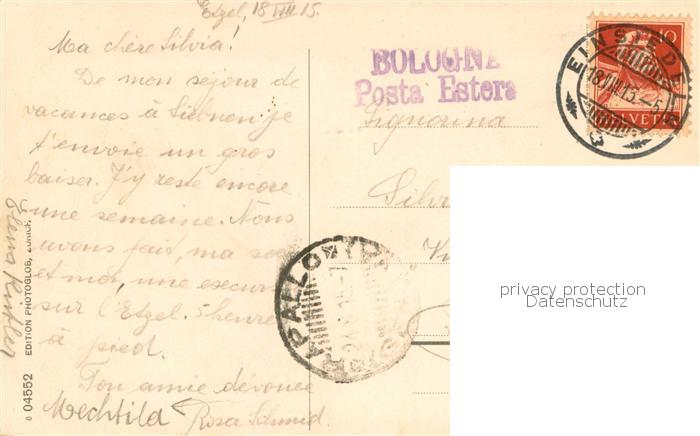 Etzel, 18 VIII 15.
Ma chère Silvia!
De mon séjour de
vacances à Siebnen je
t'envoie un gros
baiser. J'y reste encore
une semaine. Nous
avons fait, ma soe
et moi, une excurs
sur l'Etzel. 5 heures
à pied.
Ton amie dévouée
Rosa Schmid.
Mechtild
EDITION PHOTOGLOB, ZÜRICH.
04552
BOLOGNE
Posta Estera
Signorina
Silvi
EINSIEDELN
18.VIII.15.-5
HELVETIA
10
RAPALLO
privacy protection
Datenschutz